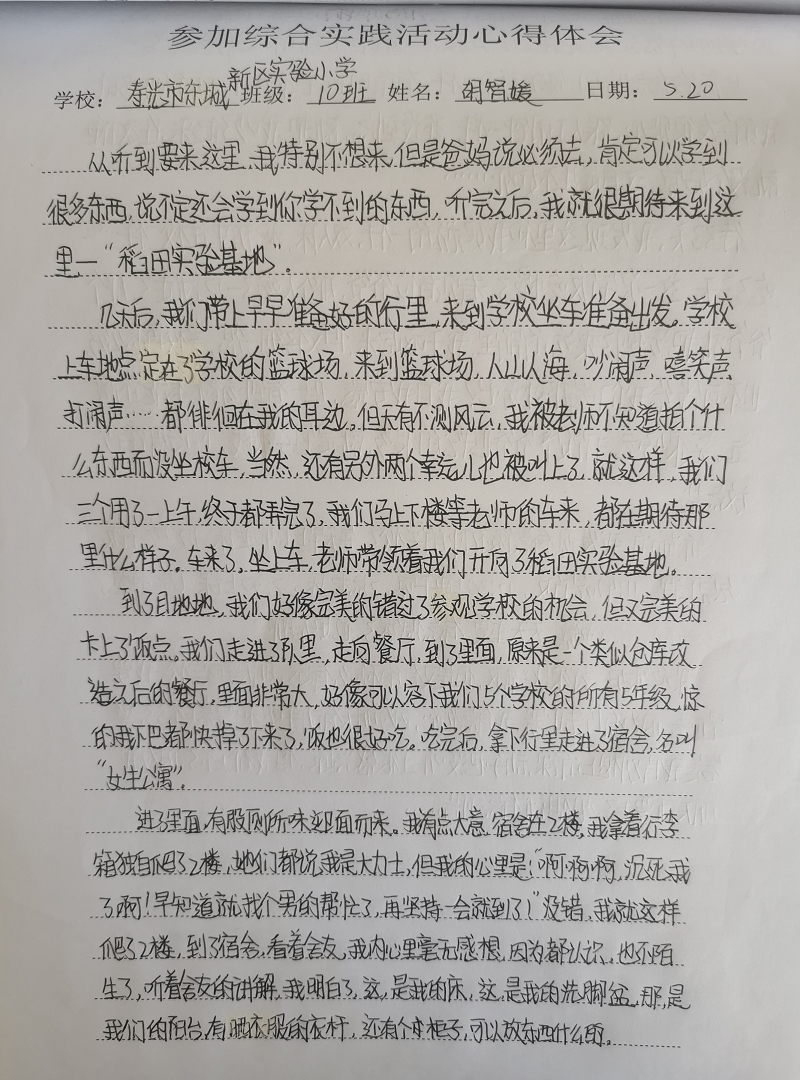 参加综合实践活动心得体会
新区实验小学
学校：寿光市东城 班级：10班 姓名：胡智媛 日期：5.20
从听到要来这里，我特别不想来，但是爸妈说必须去，肯定可以学到
很多东西，说不定还会学到你学不到的东西，听完之后，我就很期待来到这
里—“稻田实验基地”。
几天后，我们带上早早准备好的行里，来到学校坐车准备出发。学校
上车地点定在了学校的篮球场，来到篮球场，人山人海，吵闹声，嘻笑声，
打闹声……都徘徊在我的耳边。但天有不测风云，我被老师不知道拍个什
么东西而没坐校车，当然，还有另外两个幸运儿也被叫上了，就这样，我们
三个用了一上午，终于都弄完了，我们马上下楼等老师的车来，都在期待那
里什么样子。车来了，坐上车，老师带领着我们开向了稻田实验基地。
到了目地地，我们好像完美的错过了参观学校的机会，但又完美的
卡上了饭点。我们走进了队里，走向餐厅，到了里面，原来是一个类似仓库改
造之后的餐厅，里面非常大，好像可以容下我们5个学校的所有5年级，惊
的我下巴都快掉了下来了，饭也很好吃。吃完后，拿下行里走进了宿舍，名叫
“女生公寓”。
进了里面，有股厕所味迎面而来。我有点大意，宿舍在2楼，我拿着行李
箱独自爬了2楼，她们都说我是大力士，但我的心里是：“啊啊啊，沉死我
了啊！早知道就找个男的帮忙了，再坚持一会就到了！”没错，我就这样
爬了2楼，到了宿舍，看着舍友，我内心里毫无感想，因为都认识，也不陌
生了，听着舍友的讲解，我明白了，这，是我的床，这，是我的洗脚盆，那，是
我们的阳台，有晒衣服的衣杆，还有个小柜子，可以放东西什么的。